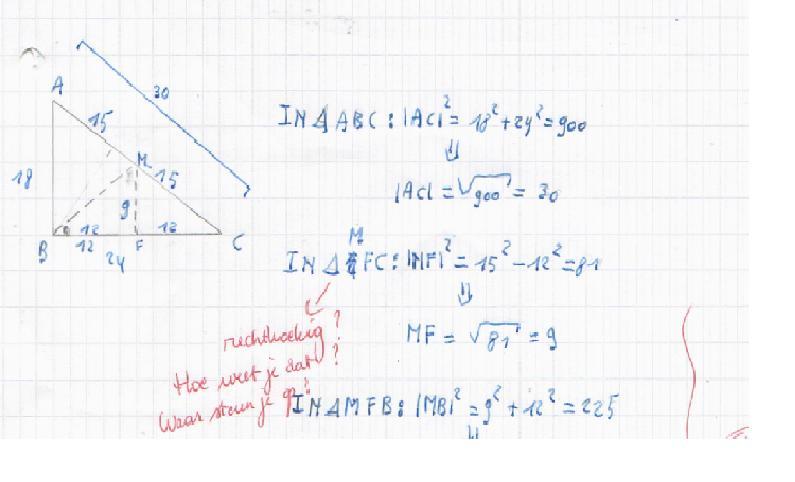 30
A
15
M
15
18
9
12
12
B
12
F
C
24
IN Δ ABC : |AC|² = 18² + 24² = 900
⇓
|AC| = √900 = 30
M
IN Δ FC : |MF|² = 15² - 12² = 81
⇓
MF = √81 = 9
rechthoekig ?
Hoe weet je dat ?
Waar steun je op ?
IN Δ MFB : |MB|² = 9² + 12² = 225
⇓